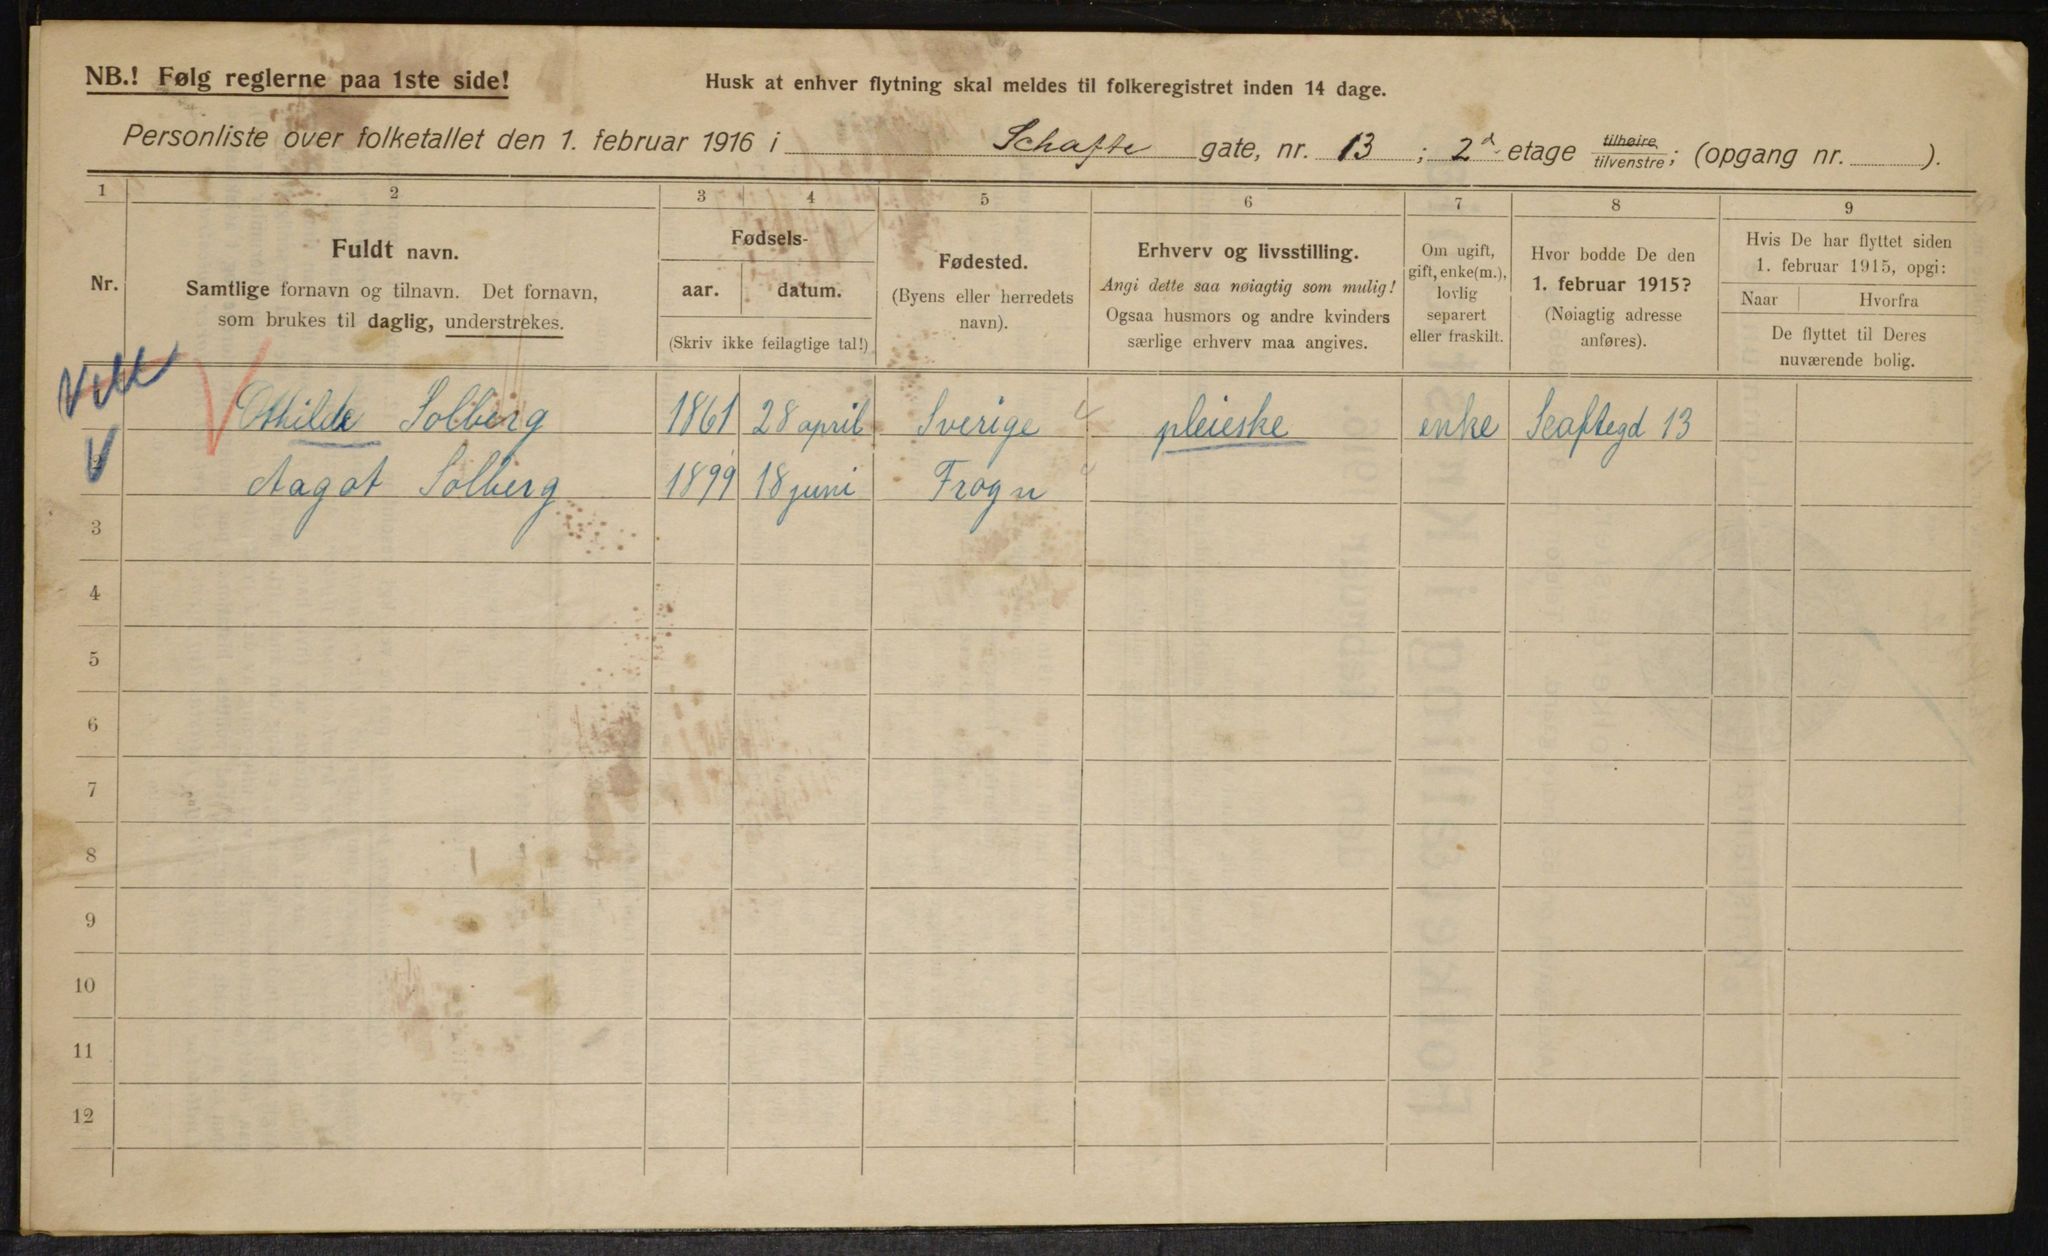 NB.! Følg reglerne paa 1ste side!
Husk at enhver flytning skal meldes til folkeregistret inden 14 dage.
Personliste over folketallet den 1. februar 1916 i Schafte gate, nr. 13 ; 2d etage tilhøire, tilvenstre; (opgang nr. ).
1 2 3 4 5 6 7 8 9
Nr.
Fuldt navn.
Samtlige fornavn og tilnavn. Det fornavn,
som brukes til daglig, understrekes.
Fødsels-
aar. datum.
(Skriv ikke feilagtige tal!)
Fødested.
(Byens eller herredets
navn).
Erhverv og livsstilling.
Angi dette saa nøiagtig som mulig!
Ogsaa husmors og andre kvinders
særlige erhverv maa angives.
Om ugift,
gift, enke(m.),
lovlig
separert
eller fraskilt.
Hvor bodde De den
1. februar 1915?
(Nøiagtig adresse
anføres).
Hvis De har flyttet siden
1. februar 1915, opgi:
Naar Hvorfra
De flyttet til Deres
nuværende bolig.
Othilde Solberg 1861 28 april Sverige pleieske enke Seaftegd 13
2 Aagot Solberg 1899 18 juni Frogn
3
4
5
6
7
8
9
10
11
12